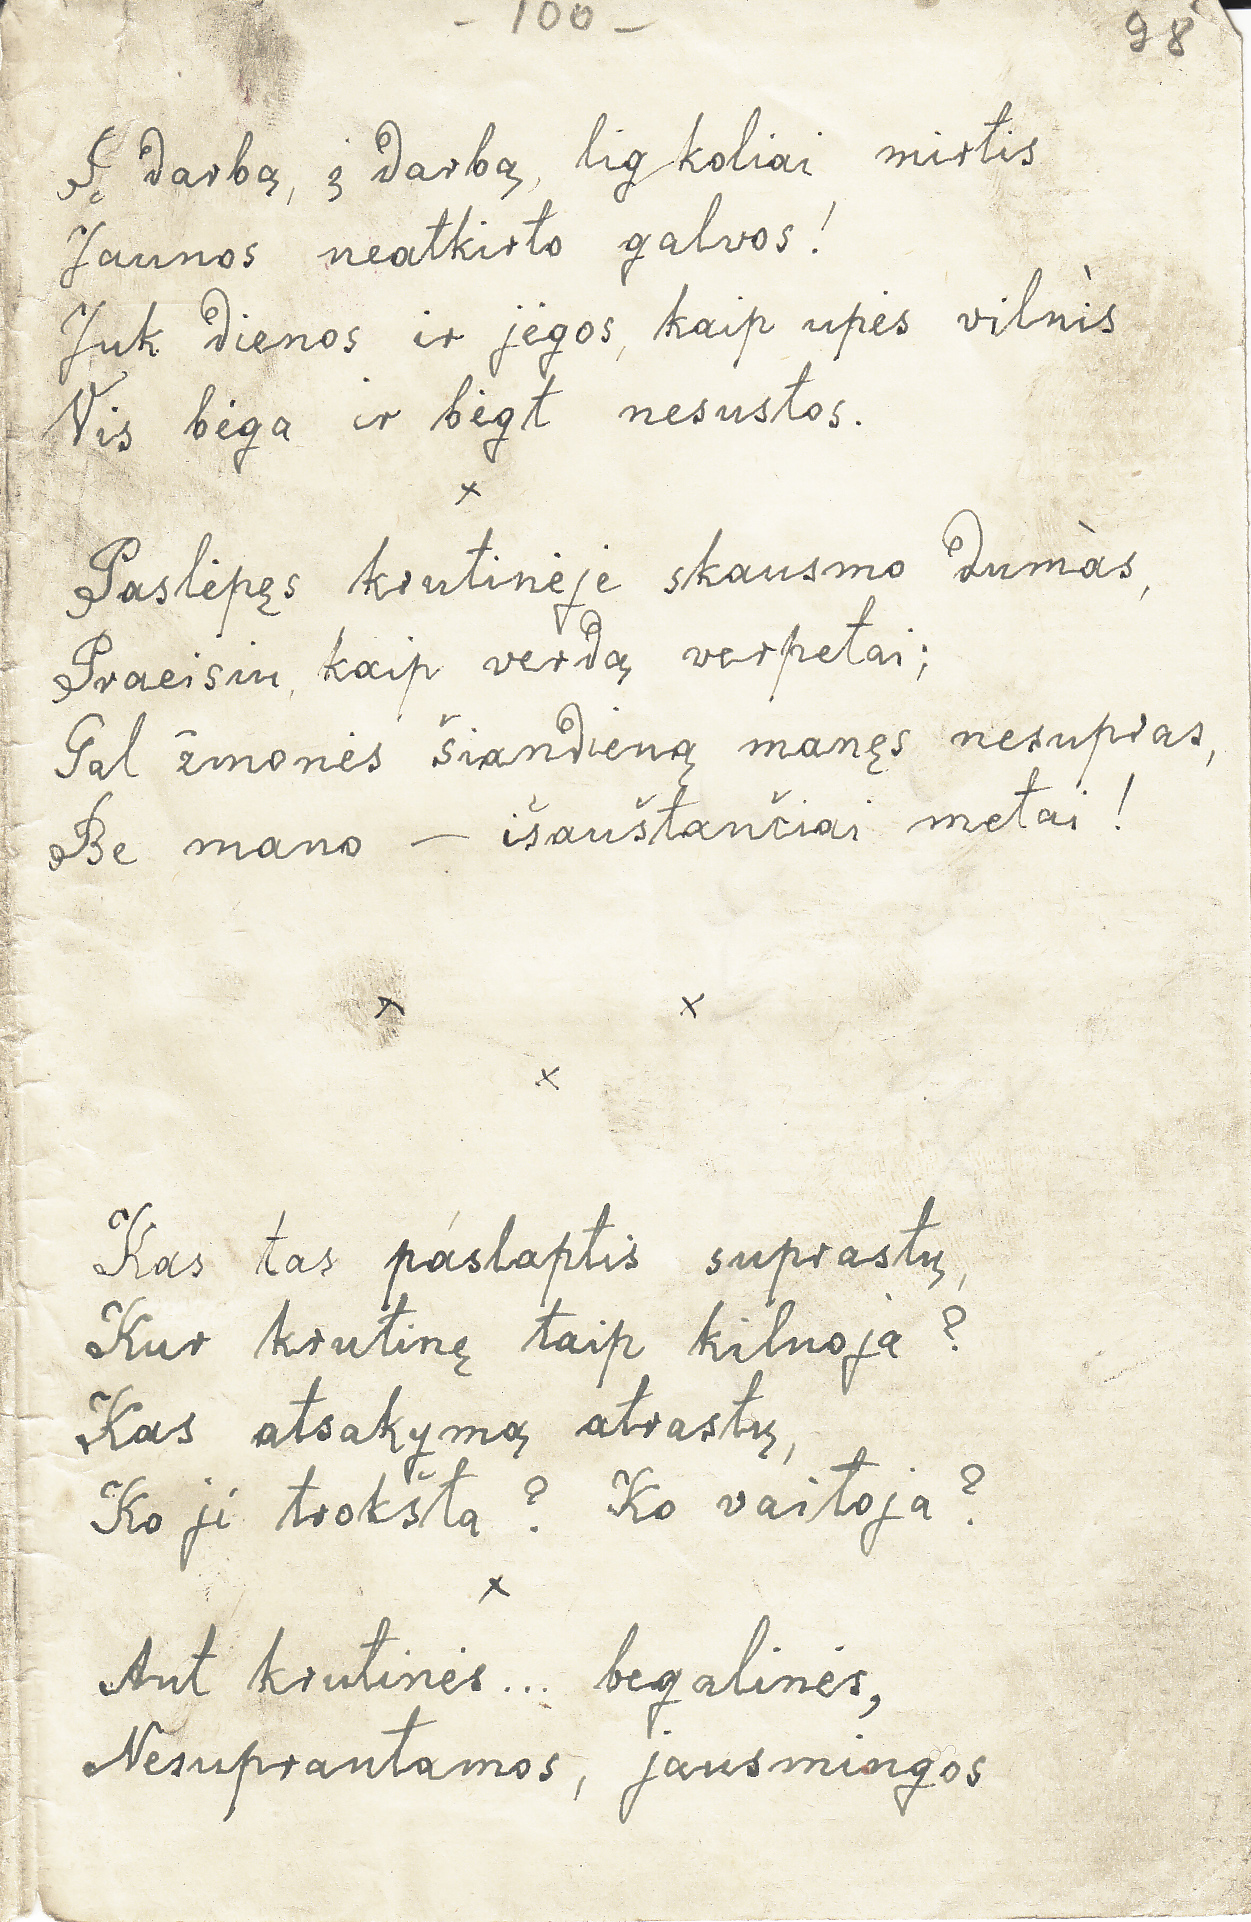 - 100 -
98
Į darbą, į darbą, ligkoliai mirtis
Jaunos neatkirto galvos!
Juk dienos ir jėgos, kaip upės vilnìs
Vis bėga ir bėgt nesustos.
x
Paslėpęs krutinėje skausmo dumàs,
Praeisiu, kaip verdą verpetai;
Gal žmonės šiandieną manęs nesupras,
Be mano — išauštančiai metai!
x x
x
Kas tas páslaptis suprastų,
Kur krutinę taip kilnoja?
Kas atsakymą atrastų,
Ko ji trokšta? Ko vaitoja?
x
Ant krutinės... begalinės,
Nesuprantamos, jausmingos